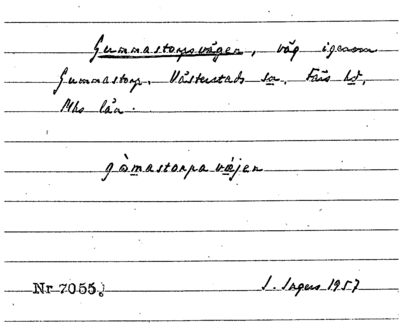 Gummastorpsvägen, väg igenom
Gummastorp. Västerstads sn. Färs hd.
Mhs län.
gòmastorpaväjen
Nr 7055.
I. Ingers 1957